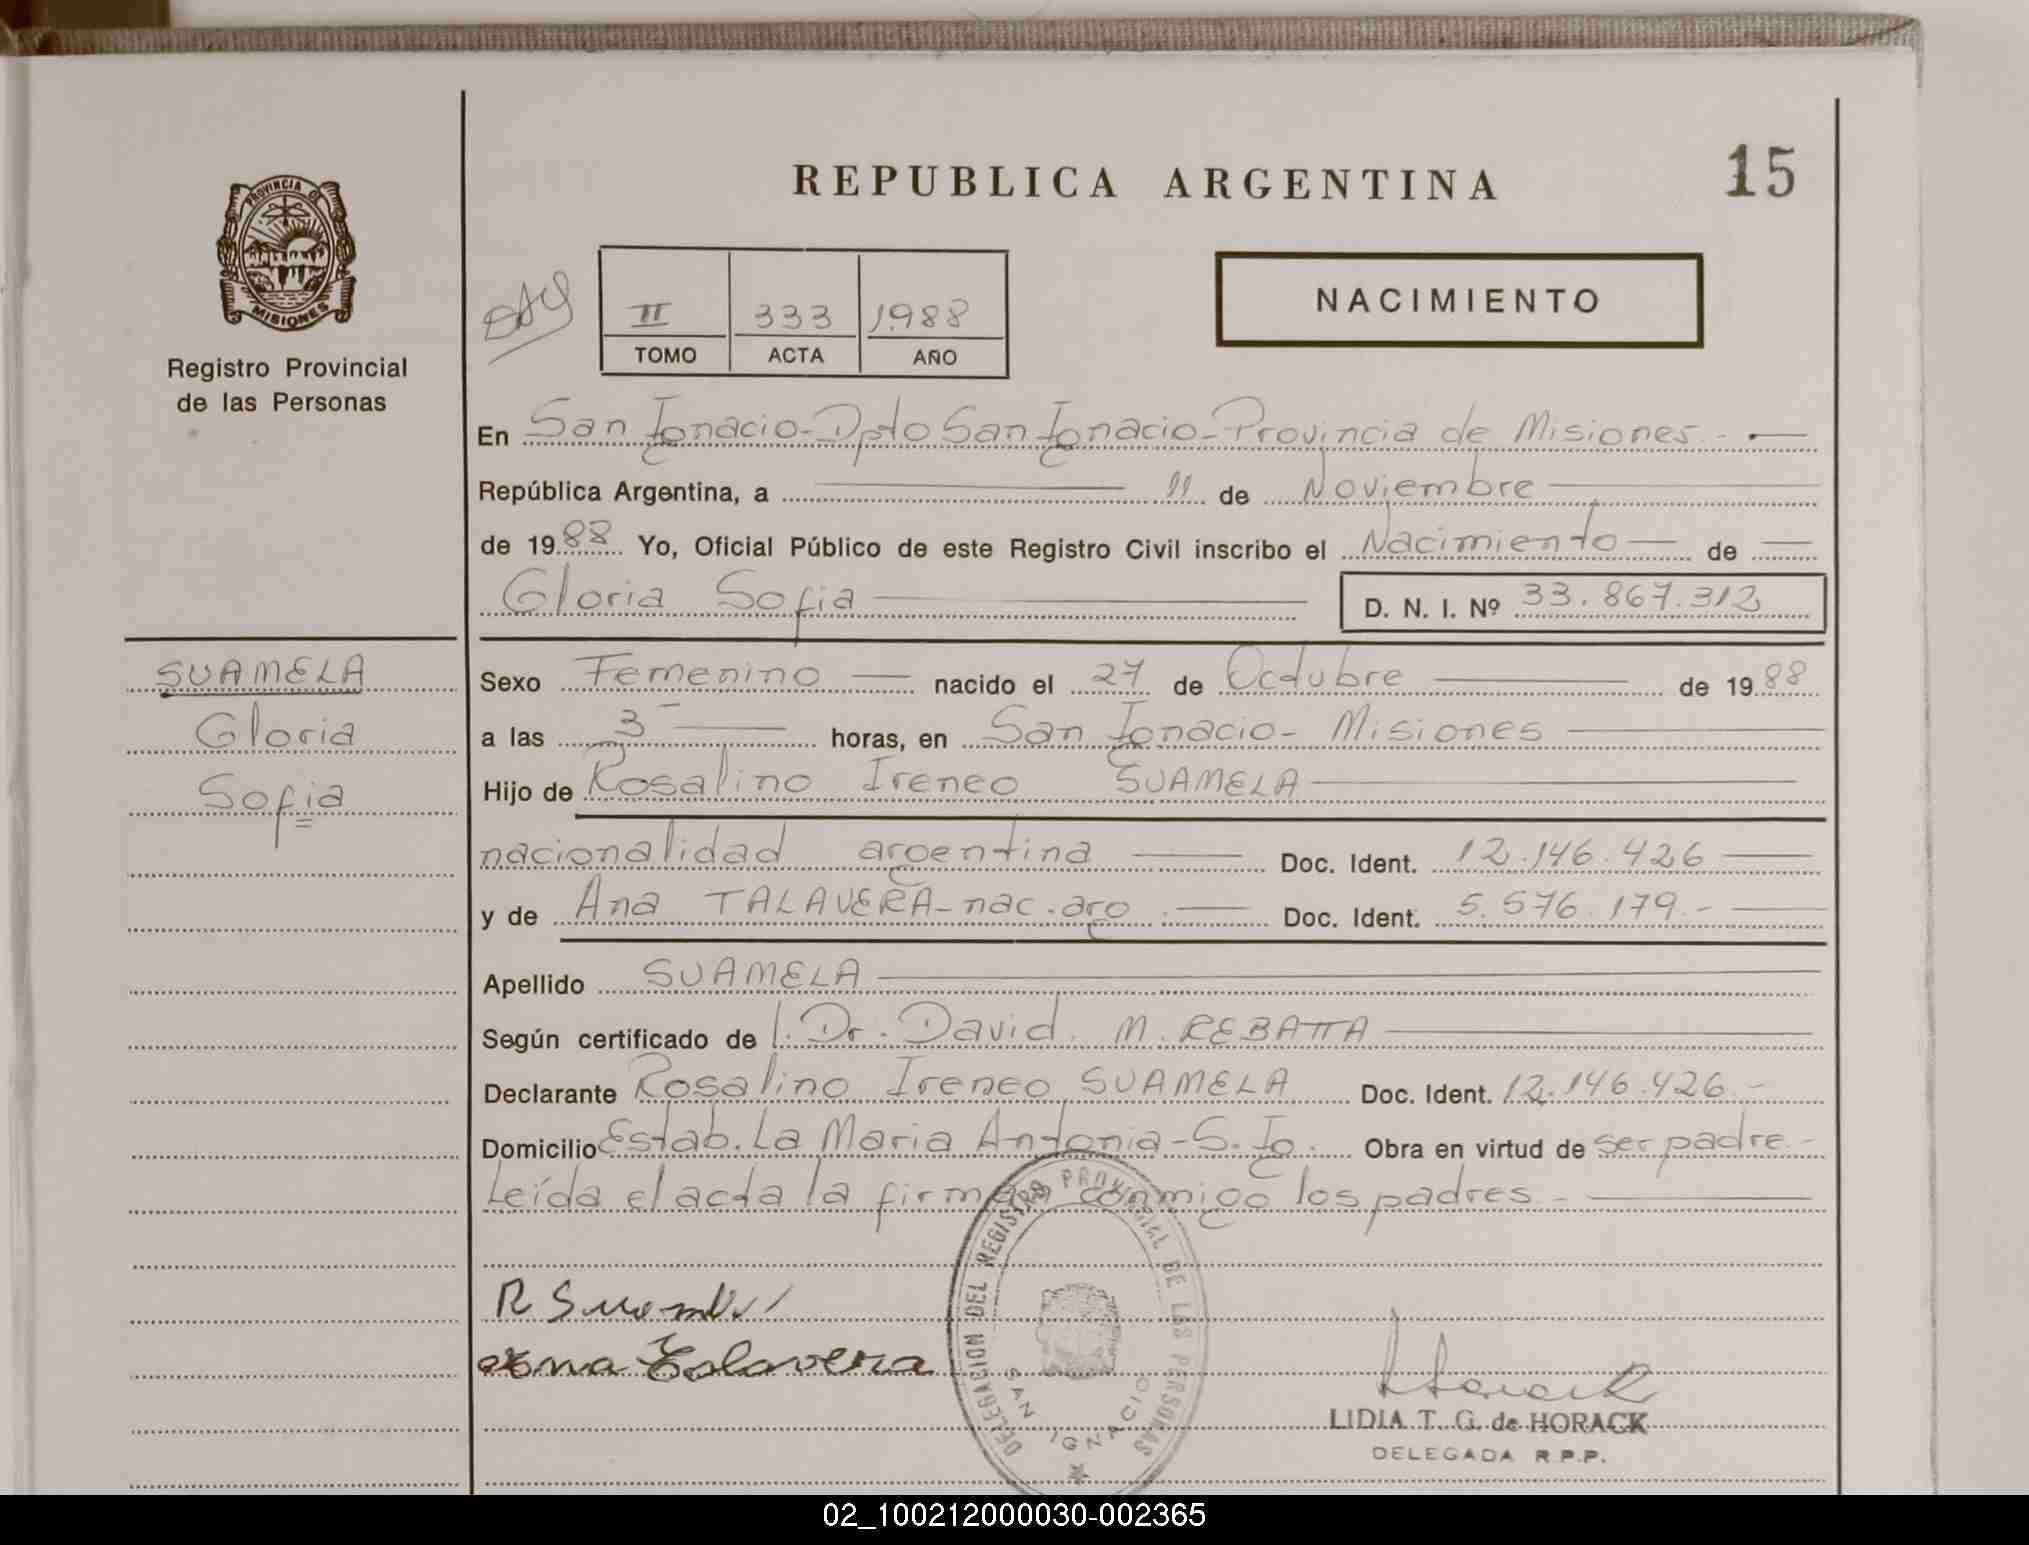 REPUBLICA ARGENTINA
15
PROVINCIA DE
MISIONES
Registro Provincial
de las Personas
II 333 1988
TOMO ACTA AÑO
NACIMIENTO
En San Ignacio-Dpto San Ignacio-Provincia de Misiones.-
República Argentina, a 11 de Noviembre
de 1988 Yo, Oficial Público de este Registro Civil inscribo el Nacimiento de
Gloria Sofia
D. N. I. Nº 33.867.312
SUAMELA
Gloria
Sofia
Sexo Femenino nacido el 27 de Octubre de 1988
a las 3 horas, en San Ignacio- Misiones
Hijo de Rosalino Ireneo SUAMELA
nacionalidad argentina Doc. Ident. 12.146.426
y de Ana TALAVERA-nac.arg. Doc. Ident. 5.576.179.-
Apellido SUAMELA
Según certificado de l. Dr. David. M. REBATTA
Declarante Rosalino Ireneo SUAMELA Doc. Ident. 12.146.426.-
Domicilio Estab. La Maria Antonia-S. Ig. Obra en virtud de ser padre.-
Leída el acta la firman conmigo los padres.-
DELEGACION DEL REGISTRO PROVINCIAL DE LAS PERSONAS
SAN IGNACIO
R
Ana Talavera
Horack
LIDIA T. G. de HORACK
DELEGADA R.P.P.
02_100212000030-002365